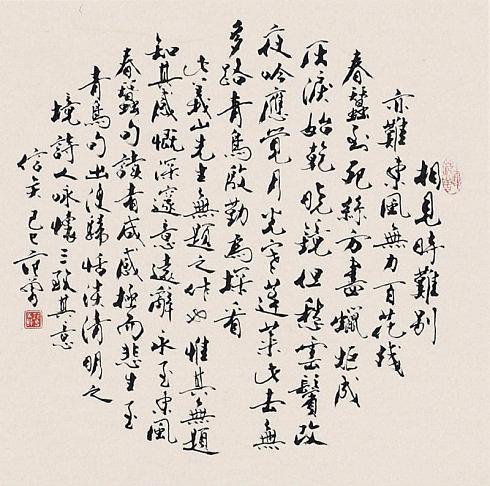 相見時難別
亦難東風無力百花殘
春蠶到死絲方盡蠟炬成
灰淚始乾曉鏡但愁雲鬢改
夜吟應覺月光寒蓬萊此去無
多路青鳥殷勤為探看
此義山先生無題之作也惟其無題
知其感慨深邃意遠辭永至東風
春蠶句讀者咸感極而悲生至
青鳥句出使歸恬淡清明之
境詩人詠懷三致其意
信矣己巳范曾